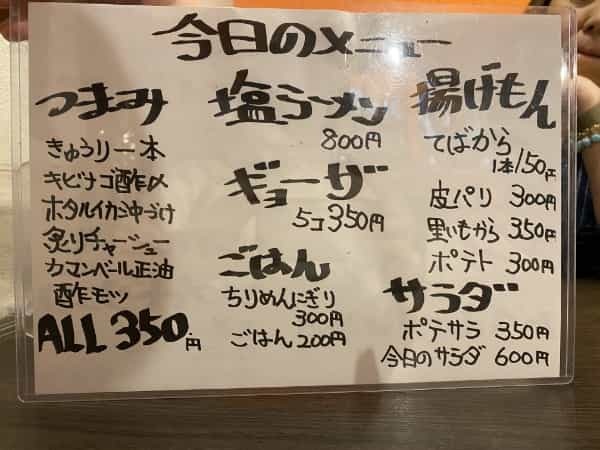 今日のメニュー
つまみ
きゅうり一本
キビナゴ酢〆
ホタルイカ沖づけ
炙りチャーシュー
カマンベール正油
酢モツ
ALL 350円
塩ラーメン
800円
ギョーザ
5コ 350円
ごはん
ちりめんにぎり
300円
ごはん 200円
揚げもん
てばから
1本/150円
皮パリ 300円
里いもから 350円
ポテト 300円
サラダ
ポテサラ 350円
今日のサラダ 600円